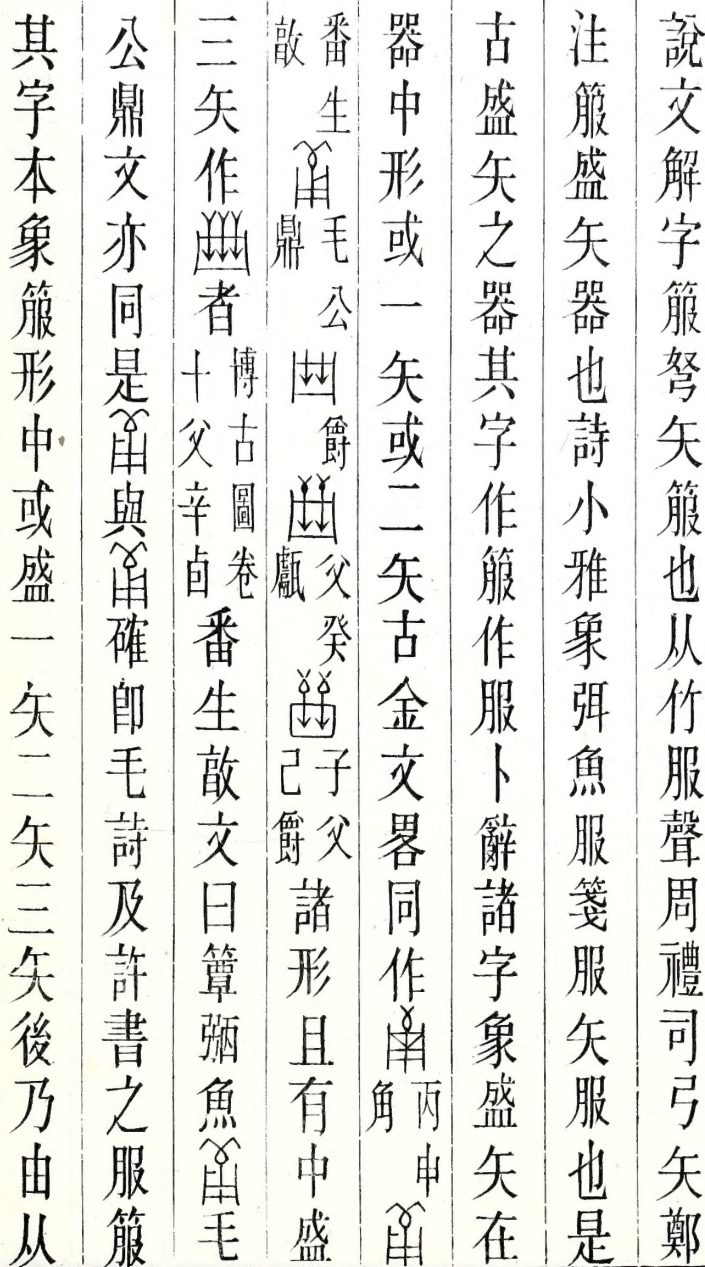 說文解字箙弩矢箙也从竹服聲周禮司弓矢鄭
注箙盛矢器也詩小雅象弭魚服箋服矢服也是
古盛矢之器其字作箙作服卜辭諸字象盛矢在
器中形或一矢或二矢古金文畧同作丙申角
番生敦毛公鼎爵父癸甗子父己爵諸形且有中盛
三矢作者博古圖卷十父辛卣番生敦文曰簟弼魚毛
公鼎文亦同是與確卽毛詩及許書之服箙
其字本象箙形中或盛一矢二矢三矢後乃由从